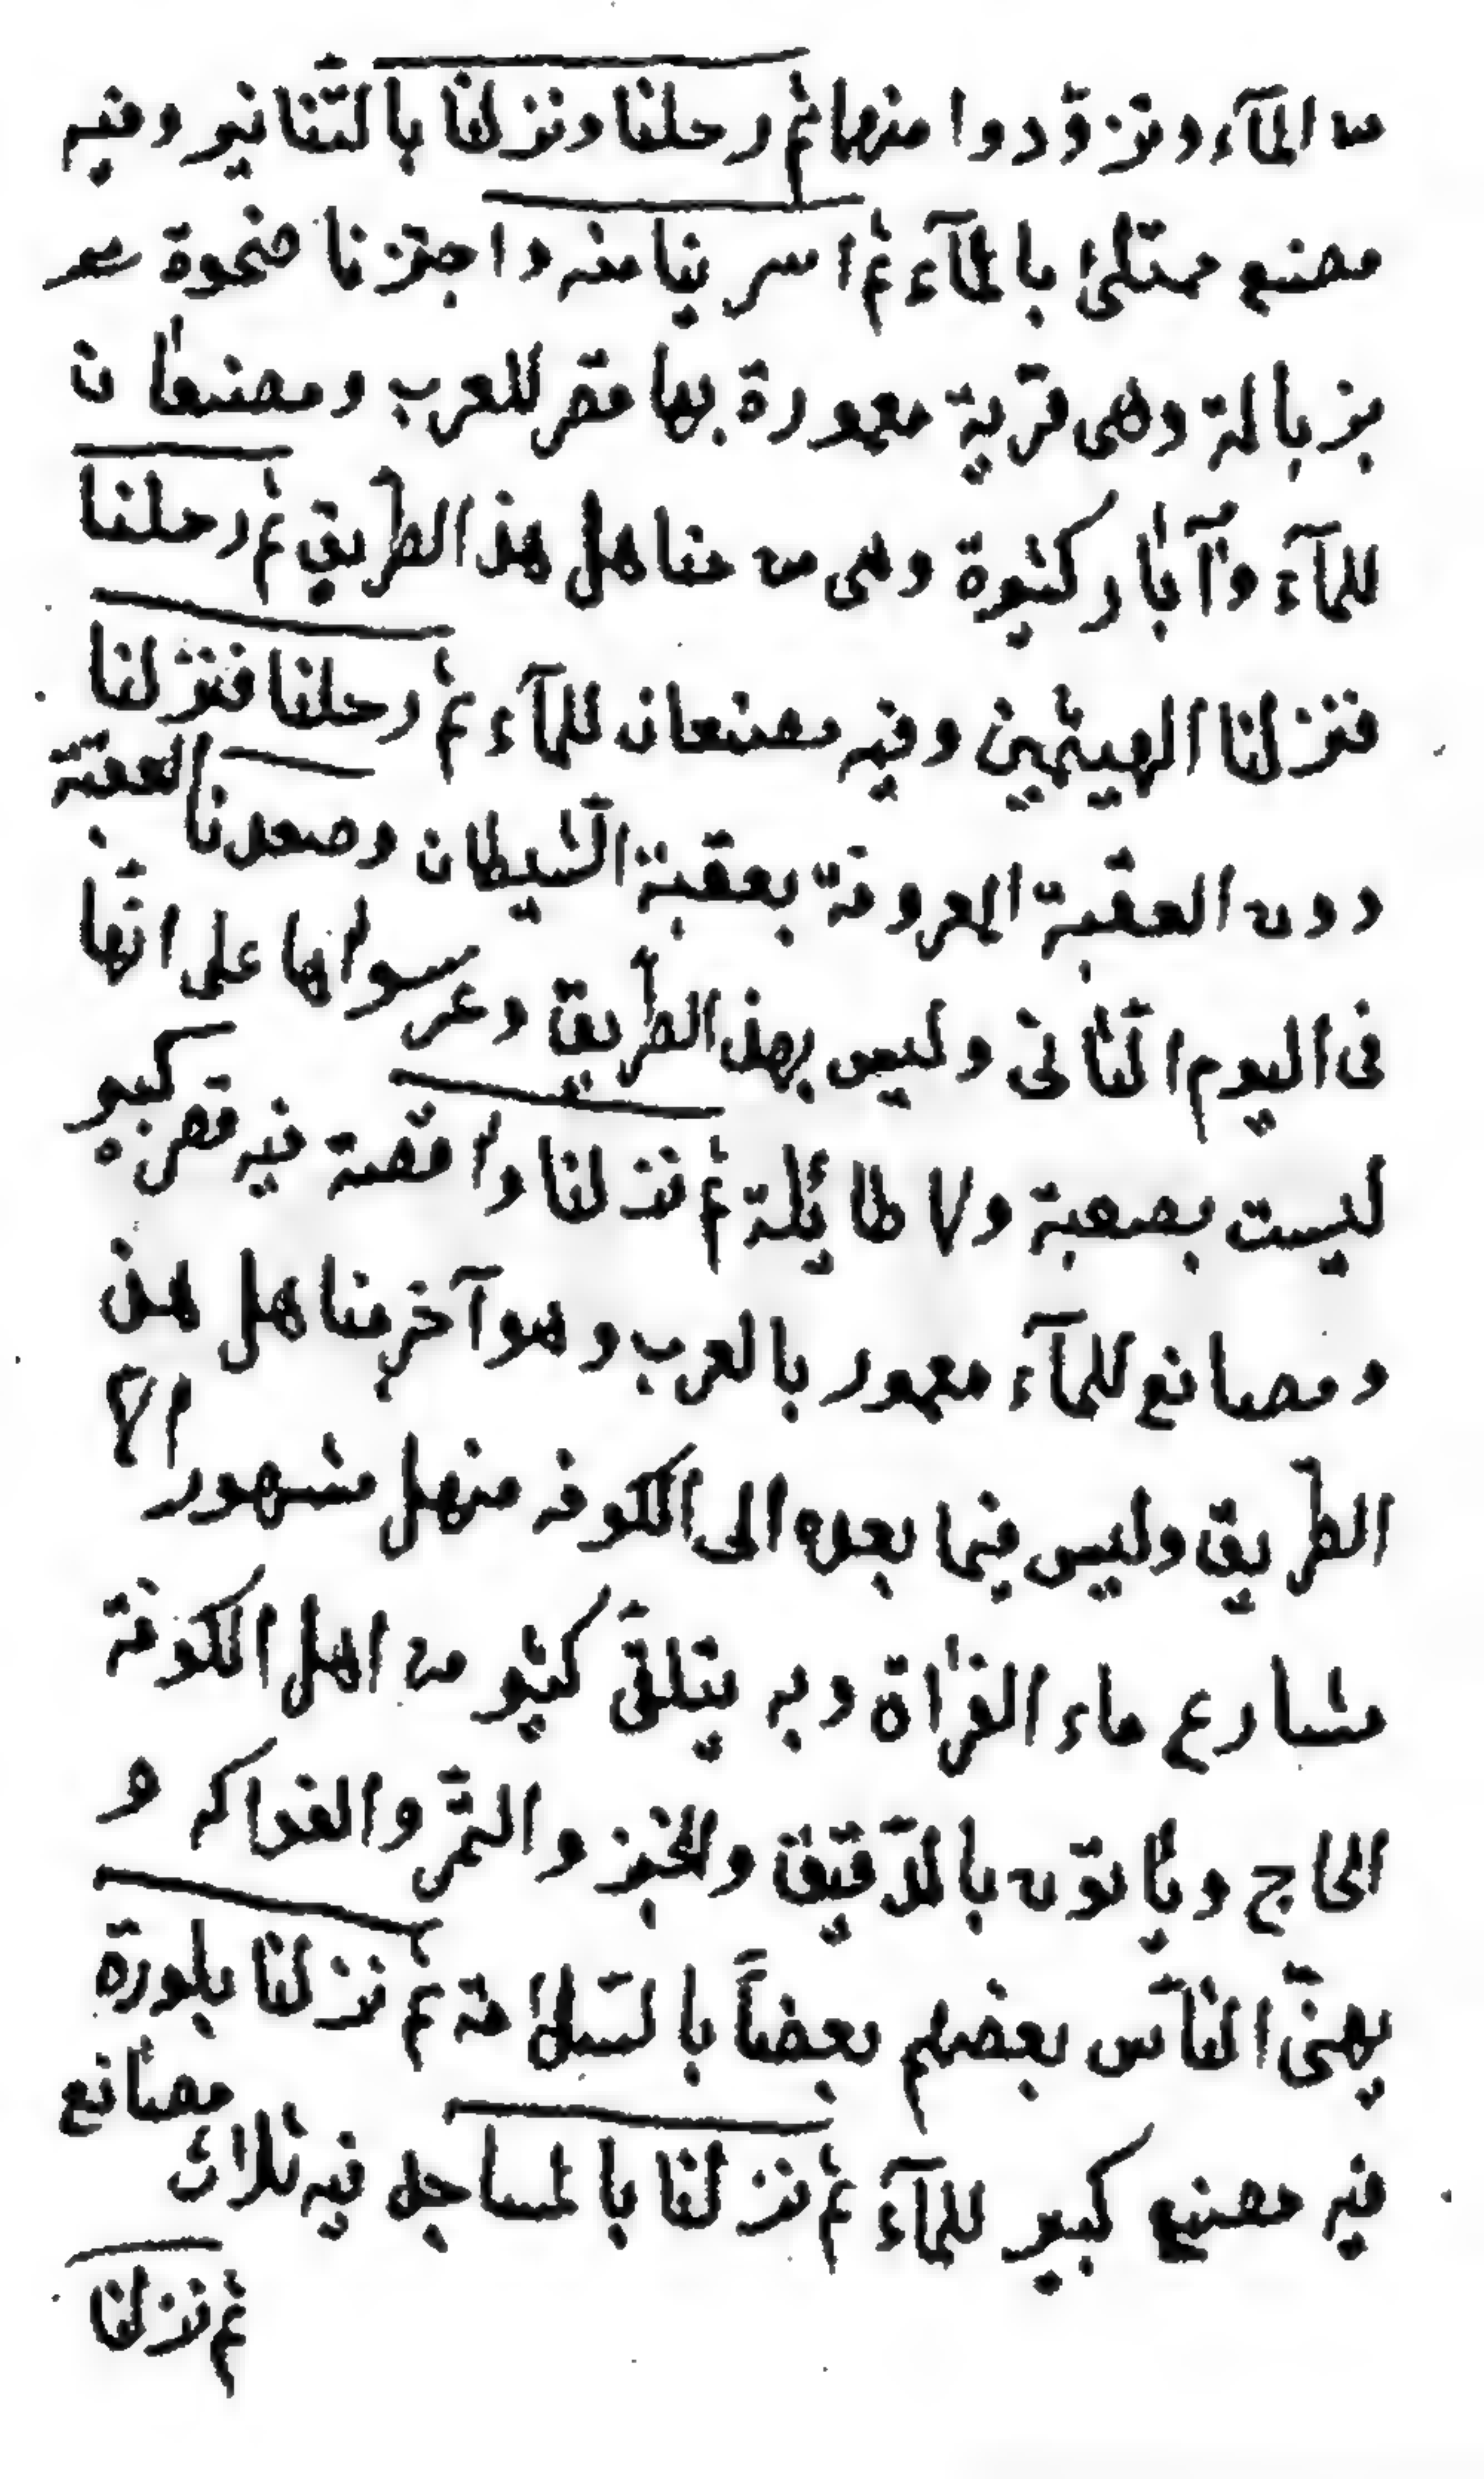 من المآء وتزوّدوا منها ثم رحلنا ونزلنا بالتّنانير وفيه
مصنع ممتلئ بالمآء ثم اسرينا منه واجتزنا ضحوة
بزبالة وهى قرية معمورة بها قصر للعرب ومصنعان
للمآء وآبار كثيرة وهى من مناهل هذا الطريق ثم رحلنا
فنزلنا الهيثمين وفيه مصنعان للمآء ثم رحلنا فنزلنا
دون العقبة المعروفة بعقبة الشّيطان وصعدنا العقبة
فى اليوم الثّانى وليس بهذا الطّريق وعر سواها على انّها
ليست بصعبة ولا طائلة ثم نزلنا واقصة فيه قصر كبير
ومصانع للمآء معمور بالعرب وهو آخر مناهل هذه
الطّريق وليس فيما بعده الى الكوفه منهل مشهور الا
مشارع ماء الفراة وبه يتلقّى كثير من اهل الكوفة
الحاج ويأتون بالدّقيق والخبز والتّمر والفواكه و
يهنّى النّاس بعضهم بعضاً بالسّلامة ثم نزلنا بلورة
فيه مصنع كبير للمآء ثم نزلنا بالمساجد فيه ثلاث مصانع
ثم نزلنا